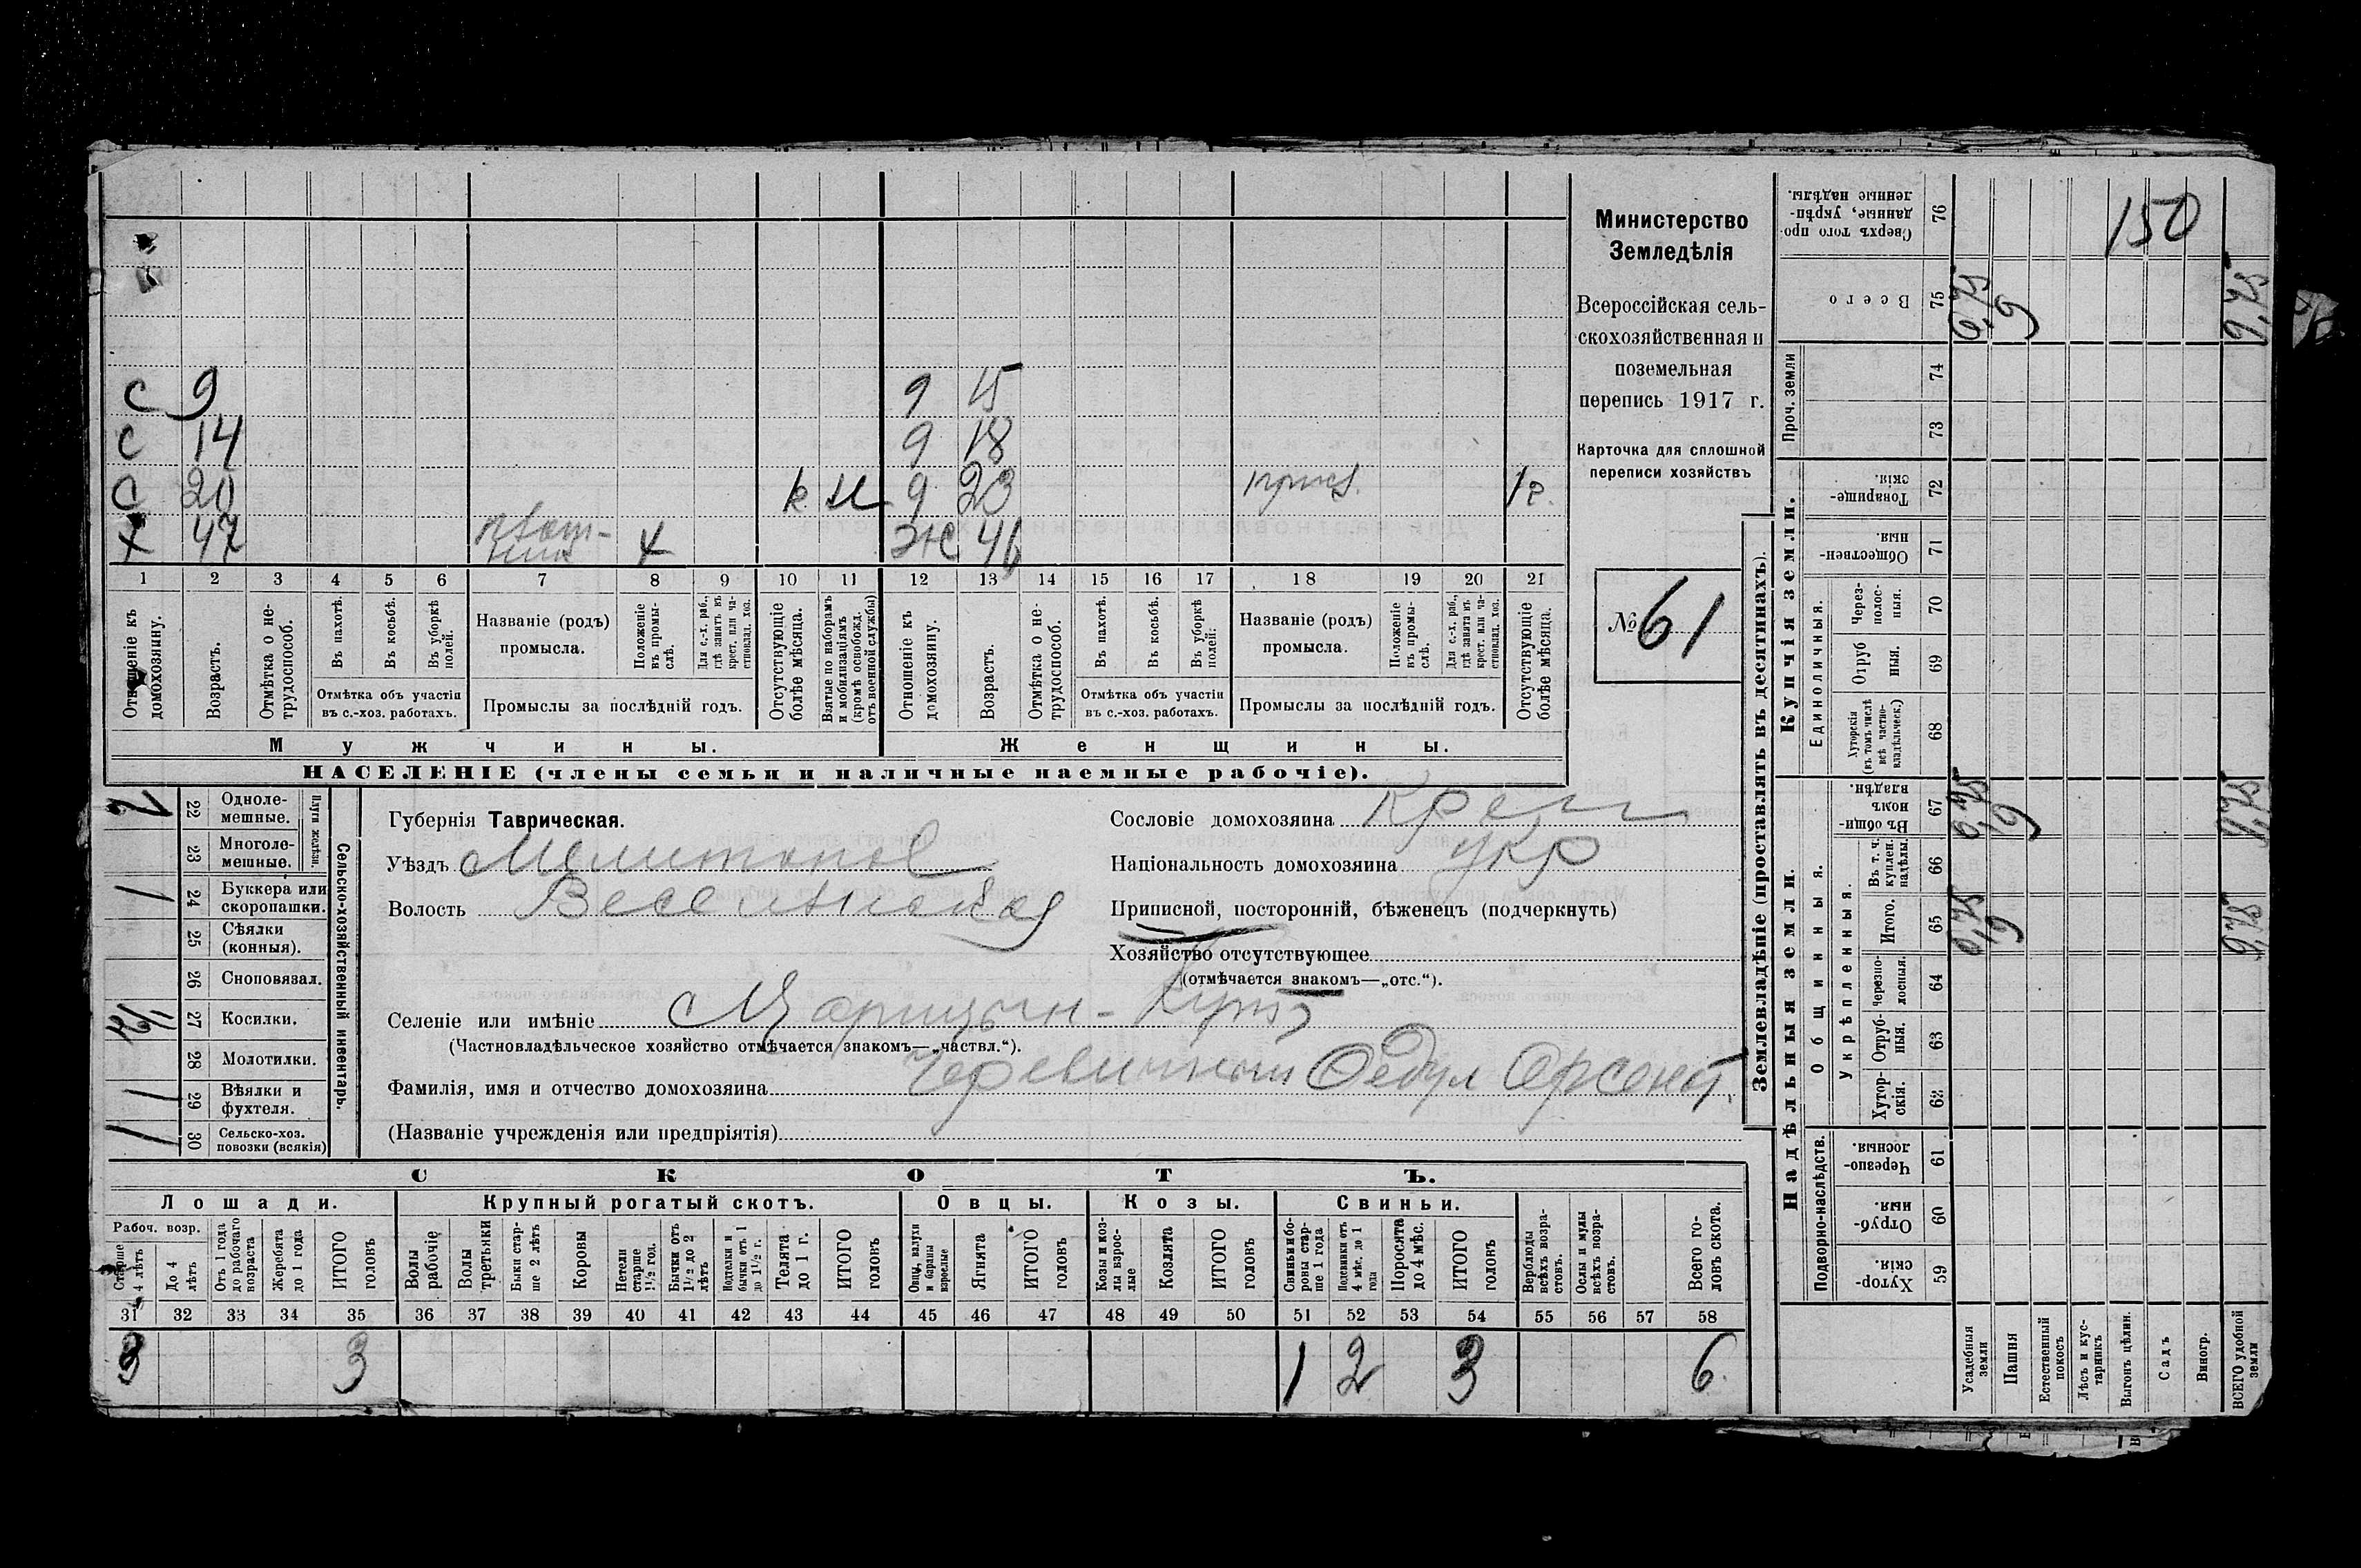 С 9 9 15
С 14 9 18
С 20 k 9 23 1 г.
Х 47 4 Ж 46
1 2 3 4 5 6 7 8 9 10 11 12 13 14 15 16 17 18 19 20 21
Отношеніе къ домохозяину.
Возрастъ.
Отмѣтка о нетрудоспособ.
Въ пахотѣ.
Въ косьбѣ.
Въ уборкѣ полей.
Отмѣтка объ участіи
въ с.-хоз. работахъ.
Названіе (родъ)
промысла.
Положеніе въ промыслѣ.
Для с.-х. раб., гдѣ занятъ въ крест. или частновлад. хоз.
Промыслы за послѣдній годъ.
Отсутствующіе болѣе мѣсяца.
Взятые по наборамъ и мобилизаціямъ (кромѣ освобожд. отъ военной службы)
Отношеніе къ домохозяину.
Возрастъ.
Отмѣтка о нетрудоспособ.
Въ пахотѣ.
Въ косьбѣ.
Въ уборкѣ полей.
Отмѣтка объ участіи
въ с.-хоз. работахъ.
Названіе (родъ)
промысла.
Положеніе въ промыслѣ.
Для с.-х. раб., гдѣ занята въ крест. или частновлад. хоз.
Промыслы за послѣдній годъ.
Отсутствующіе болѣе мѣсяца.
Мужчины.
Женщины.
НАСЕЛЕНІЕ (члены семьи и наличные наемные рабочіе).
Министерство
Земледѣлія
Всероссійская сель-
скохозяйственная и
поземельная
перепись 1917 г.
Карточка для сплошной
переписи хозяйствъ
№ 61
Сельско-хозяйственный инвентарь.
Плуги желѣзн.
22 Однолемешные.
23 Многолемешные.
1 24 Буккера или скоропашки.
25 Сѣялки (конныя).
26 Сноповязал.
27 Косилки.
28 Молотилки.
1 29 Вѣялки и фухтеля.
1 30 Сельско-хоз. повозки (всякія)
Губернія Таврическая.
Уѣздъ Мелитопол
Волость Веселянская
Сословіе домохозяина Крест
Національность домохозяина укр
Приписной, посторонній, бѣженецъ (подчеркнуть)
Хозяйство отсутствующее
(отмѣчается знакомъ—„отс.“).
Селеніе или имѣніе Царицын-Кутъ
(Частновладѣльческое хозяйство отмѣчается знакомъ—„частвл.“).
Фамилія, имя и отчество домохозяина Черевичный Федул Арсент.
(Названіе учрежденія или предпріятія)
СКОТЪ.
Лошади. Крупный рогатый скотъ. Овцы. Козы. Свиньи.
Рабоч. возр.
Старше 4 лѣтъ
До 4 лѣтъ
Отъ 1 года до рабочаго возраста
Жеребята до 1 года
ИТОГО головъ
Волы рабочіе
Волы третьяки
Быки старше 2 лѣтъ
Коровы
Нетели старше 1½ год.
Бычки отъ 1½ до 2 лѣтъ
Подтелки и бычки отъ 1 до 1½ г.
Телята до 1 г.
ИТОГО головъ
Овцы, валухи и бараны взрослые
Ягнята
ИТОГО головъ
Козы и козлы взрослые
Козлята
ИТОГО головъ
Свиньи и боровы старше 1 года
Подсвинки отъ 4 мѣс. до 1 года
Поросята до 4 мѣс.
ИТОГО головъ
Верблюды всѣхъ возрастовъ.
Ослы и мулы всѣхъ возрастовъ.
Всего головъ скота.
31 32 33 34 35 36 37 38 39 40 41 42 43 44 45 46 47 48 49 50 51 52 53 54 55 56 57 58
3 3 1 2 3 6
Землевладѣніе (проставлять въ десятинахъ).
Купчія земли.
Надѣльныя земли.
Сверхъ того проданные, укрѣпленные надѣлы. 76 150
Всего 75
Проч. земли 74
73
Товарищескія. 72
Общественныя. 71
Единоличныя.
Черезполосныя. 70
Отрубныя. 69
Хуторскія (въ томъ числѣ всѣ частновладѣльческ.) 68
Общинныя.
Въ общинномъ владѣн. 67
Укрѣпленныя.
Въ т. ч. куплен. надѣлы. 66
Итого. 65
Черезполосныя. 64
Отрубныя. 63
Хуторскія. 62
Подворно-наслѣдств.
Черезполосныя. 61
Отрубныя. 60
Хуторскія. 59
Усадебныя земли
Пашня
Естественный покосъ
Лѣсъ и кустарникъ
Выгонъ цѣлин.
Садъ
Виногр.
ВСЕГО удобной земли